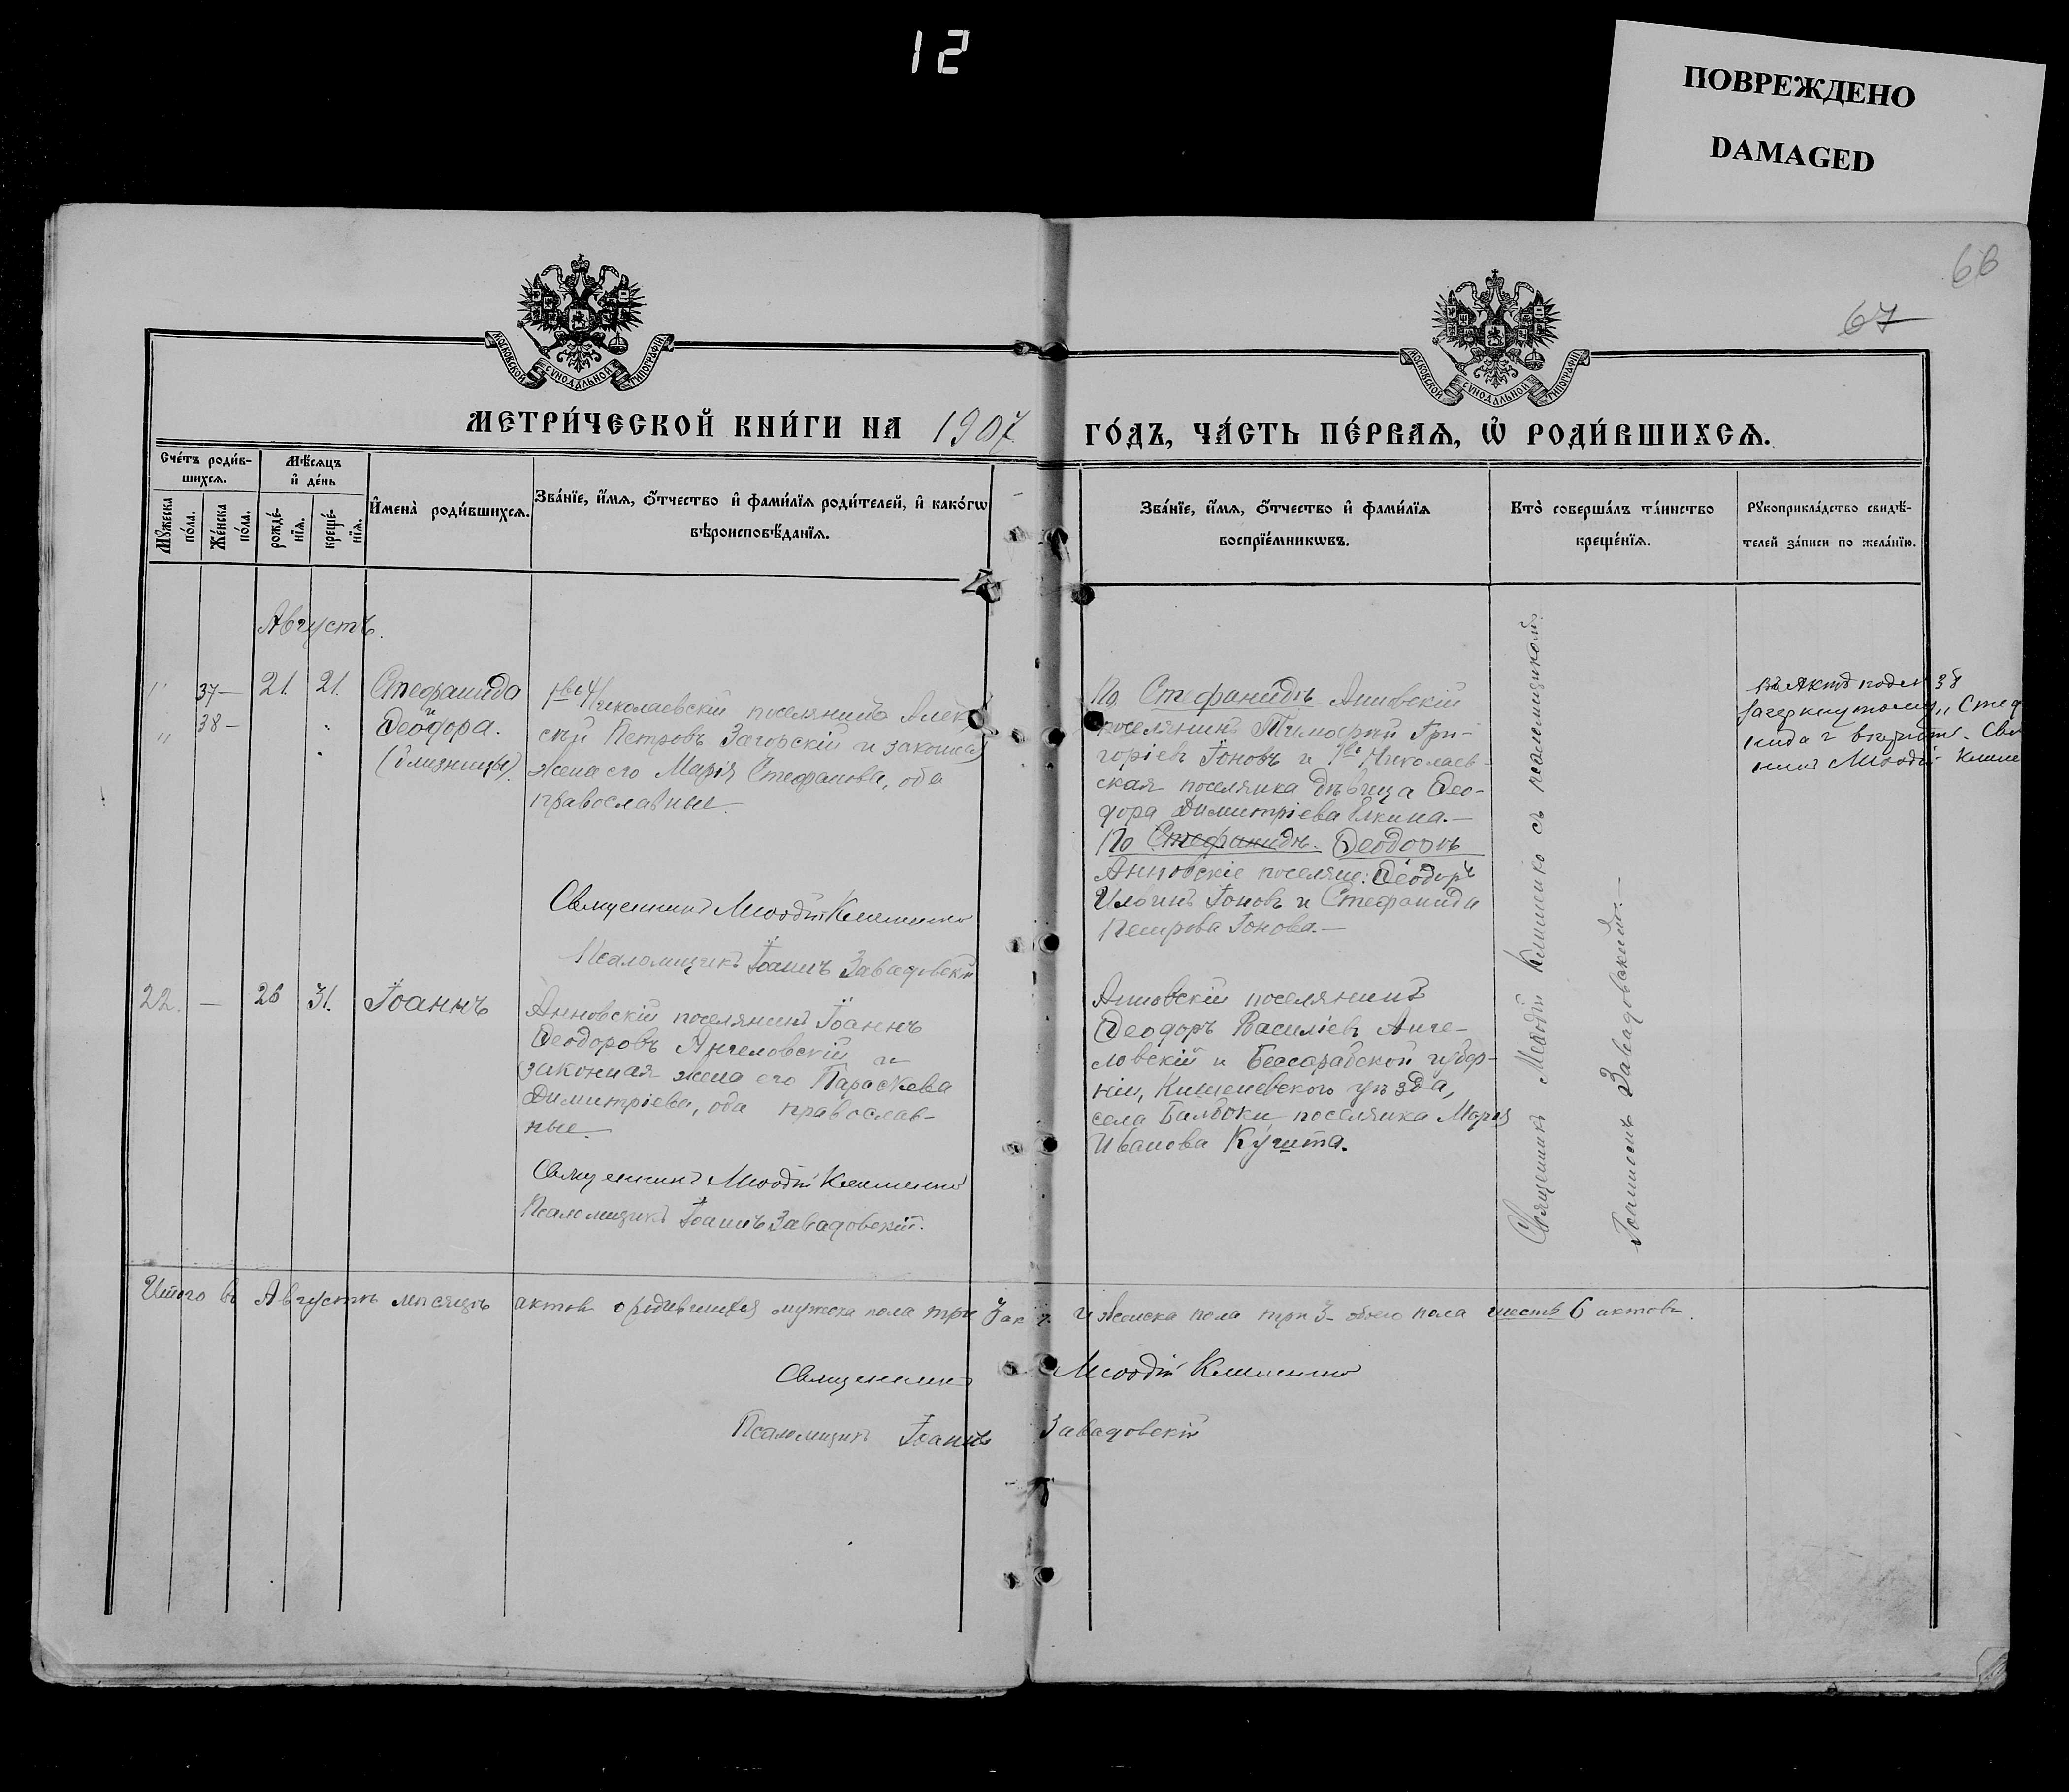 12
ПОВРЕЖДЕНО
DAMAGED
66
67
МОСКОВСКОЙ СѴНОДАЛЬНОЙ ТИПОГРАФІИ
МОСКОВСКОЙ СѴНОДАЛЬНОЙ ТИПОГРАФІИ
МЕТРИ́ЧЕСКОЙ КНИ́ГИ НА 1907 ГО́ДЪ, ЧА́СТЬ ПЕ́РВАѦ, Ѡ҆ РОДИ́ВШИХСѦ.
Сче́тъ роди́в-
шихсѧ.
Мꙋ́жеска по́ла.
Же́нска по́ла.
Мѣ́сѧцъ
и҆ де́нь
рожде́-
нїѧ.
креще́-
нїѧ.
И҆мена̀ роди́вшихсѧ.
Зва́нїе, и҆́мѧ, ѻ҆́тчество и҆ фами́лїѧ роди́телей, и҆ како́гѡ
вѣроисповѣ́данїѧ.
Зва́нїе, и҆́мѧ, ѻ҆́тчество и҆ фами́лїѧ
воспрїе́мникѡвъ.
Кто̀ соверша́лъ та́инство
креще́нїѧ.
Рꙋкоприкла́дство свидѣ́-
телей за́писи по жела́нїю.
Августъ.
" 37— 21. 21. Стефанида
" 38— и Ѳеодора.
(близницы).
1во Николаевскій поселянинъ Алек
сѣй Петровъ Загорскій и законная
жена его Марія Стефанова, оба
православные
Священникъ Меѳодій Клименко
Псаломщикъ Іоаннъ Завадовскій
По Стефанидѣ Анновскій
поселянинъ Тимоѳей Гри-
горіевъ Іоновъ и 1во Николаев-
ская поселянка дѣвица Ѳео-
дора Димитріева Елкина.—
По Стефанидѣ. Ѳеодорѣ
Анновскіе поселяне: Ѳеодоръ
Іоновъ и Стефанида
Петрова Іонова.—
въ актѣ подъ № 38
зачеркнутому „Стеф
нида" вѣрить. Свя
никъ Меѳодій Климе
22. — 26 31. Іоаннъ
Анновскій поселянинъ Іоаннъ
Ѳеодоровъ Ангеловскій и
законная жена его Параскева
Димитріева, оба православ-
ные
Священникъ Меѳодій Клименко
Псаломщикъ Іоаннъ Завадовскій.
Анновскій поселянинъ
Ѳеодоръ Василіевъ Анге-
ловскій и Бессарабской губер-
ніи, Кишеневскаго уѣзда,
села поселянка Марія
Иванова
Священникъ Меѳодій Клименко съ псаломщикомъ
Іоанномъ Завадовскимъ.—
Итого въ Августѣ мѣсяцѣ актовъ о родившихся мужеска пола три 3 ак и женска пола три 3 обоего пола шесть 6 актовъ.
Священникъ Меѳодій Клименко
Псаломщикъ Іоаннъ Завадовскій